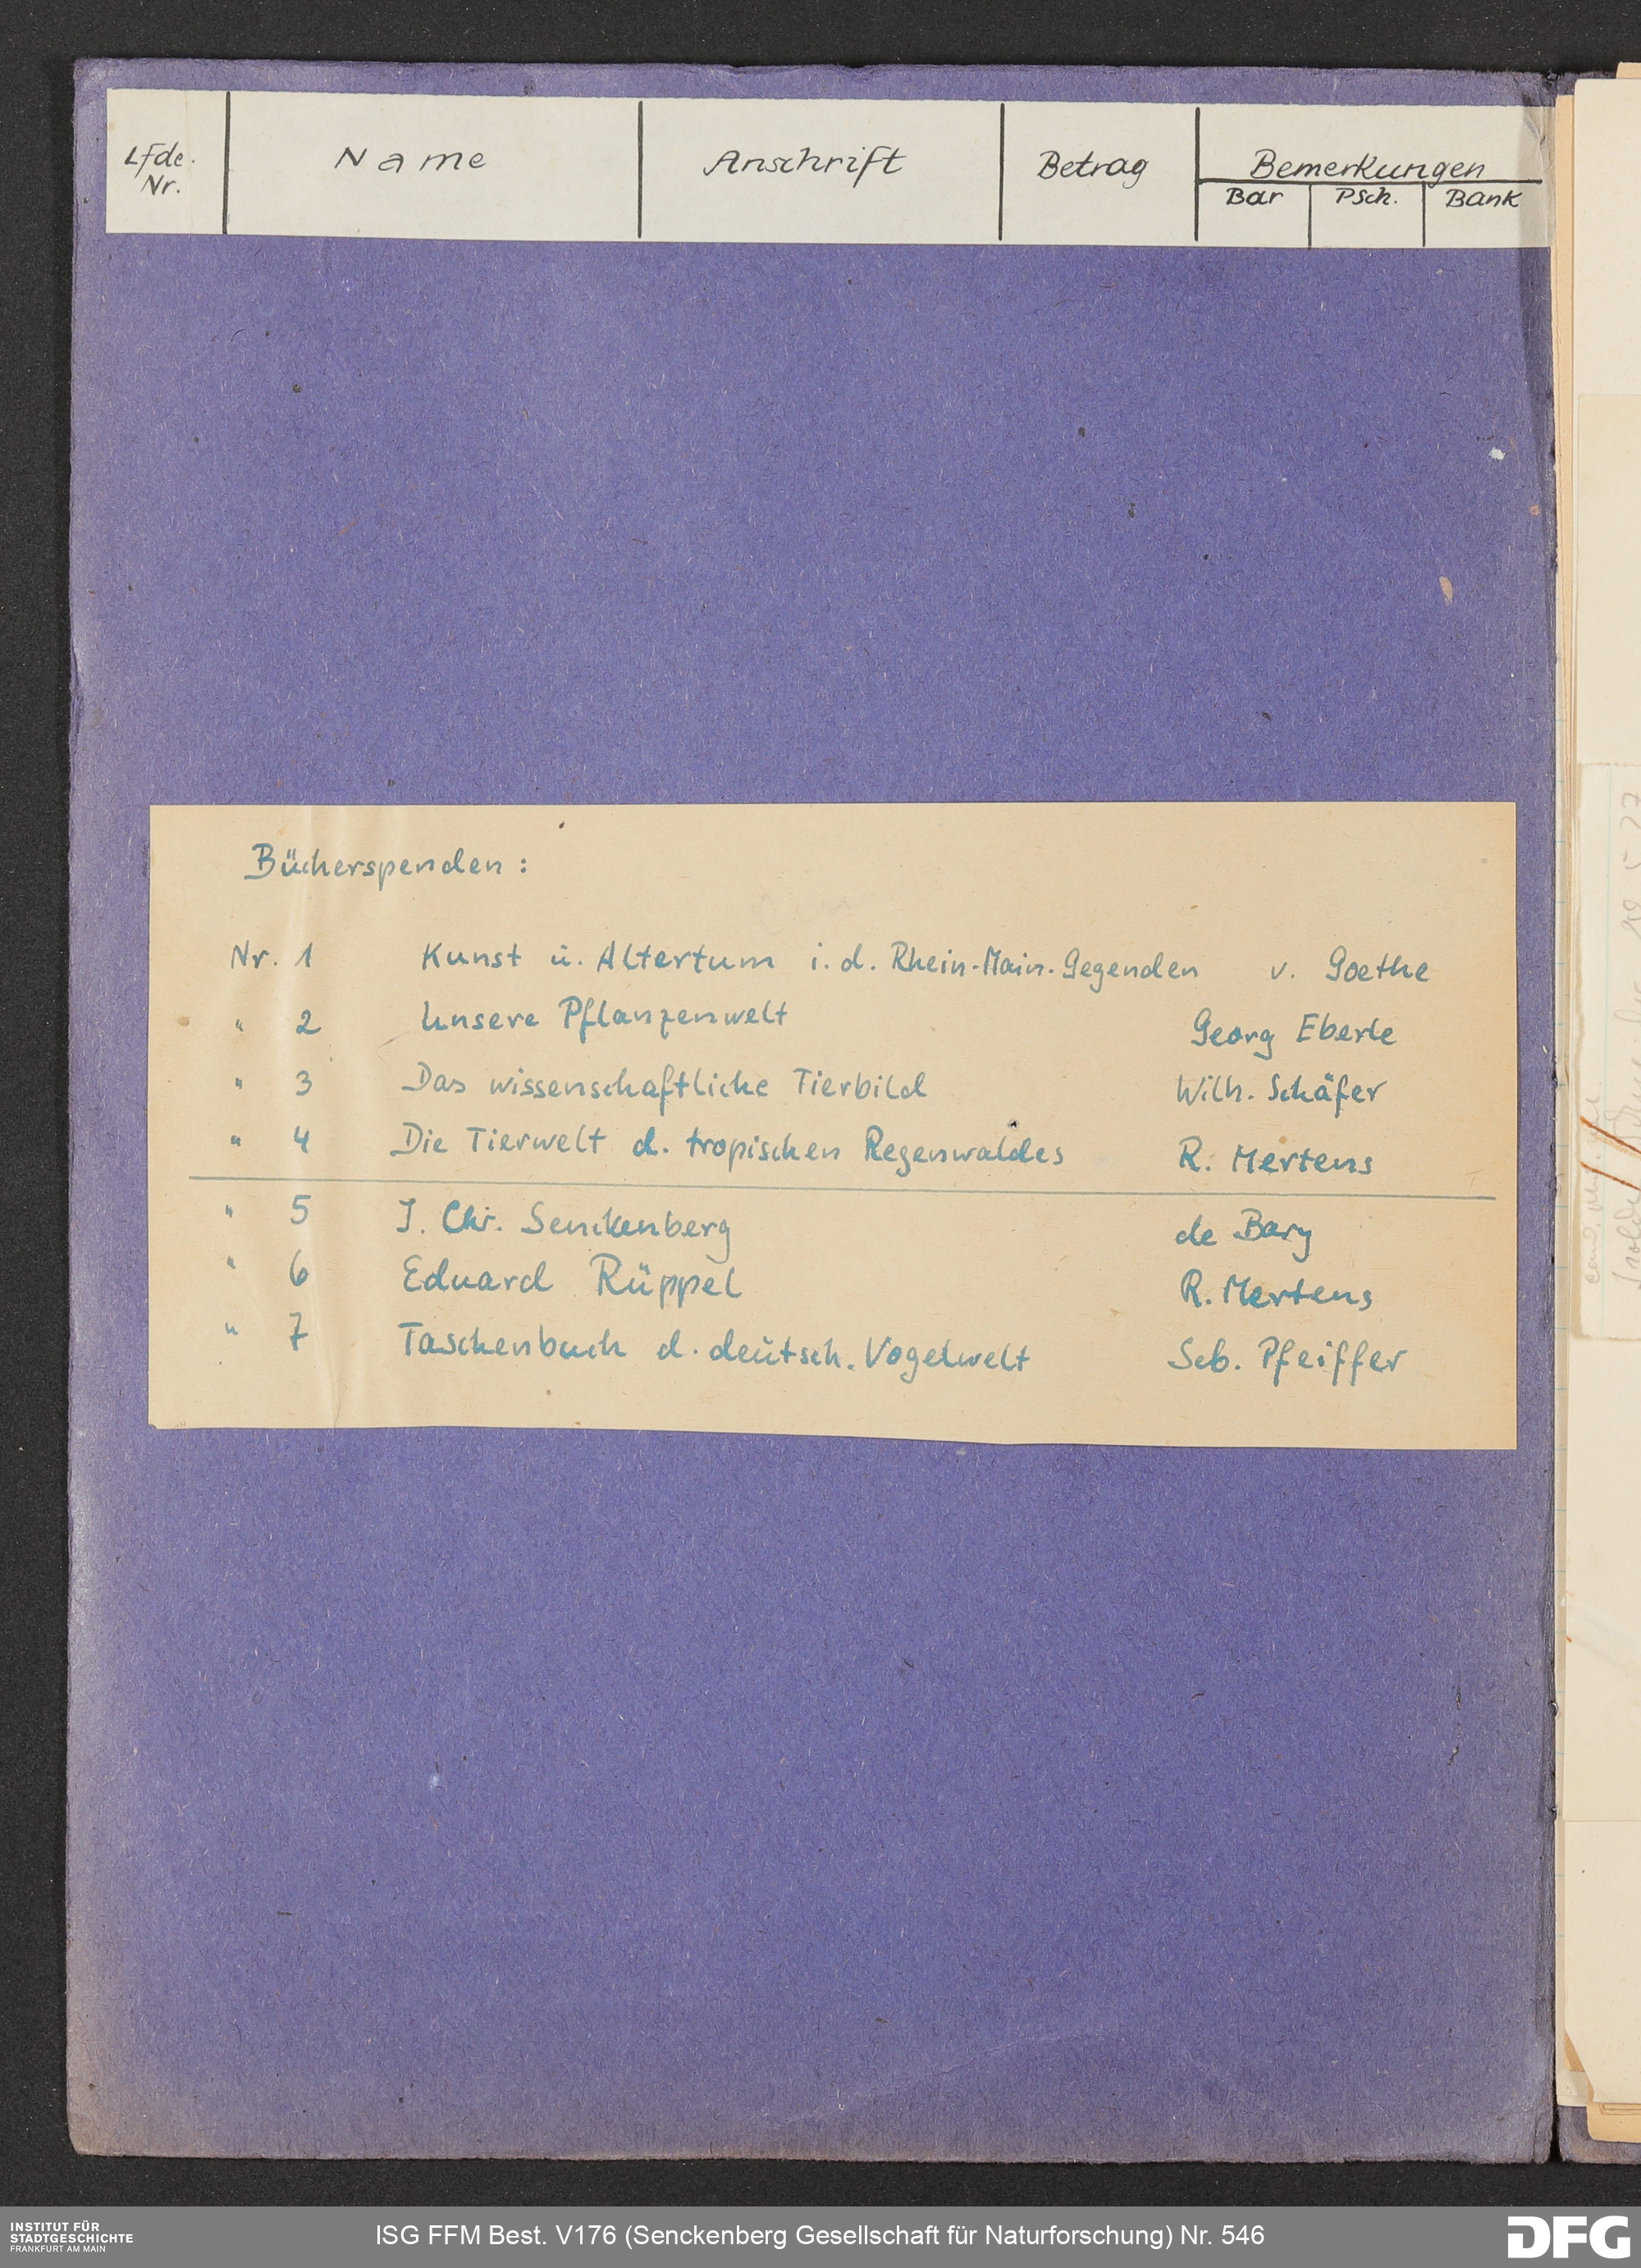 Lfde. Nr. Name Anschrift Betrag Bemerkungen
Bar PSch. Bank
Bücherspenden:
Nr. 1 Kunst u. Altertum i. d. Rhein-Main-Gegenden v. Goethe
" 2 Unsere Pflanzenwelt Georg Eberle
" 3 Das wissenschaftliche Tierbild Wilh. Schäfer
" 4 Die Tierwelt d. tropischen Regenwaldes R. Mertens
" 5 J. Chr. Senckenberg de Bary
" 6 Eduard Rüppel R. Mertens
" 7 Taschenbuch d. deutsch. Vogelwelt Seb. Pfeiffer
INSTITUT FÜR
STADTGESCHICHTE
FRANKFURT AM MAIN
ISG FFM Best. V176 (Senckenberg Gesellschaft für Naturforschung) Nr. 546
DFG